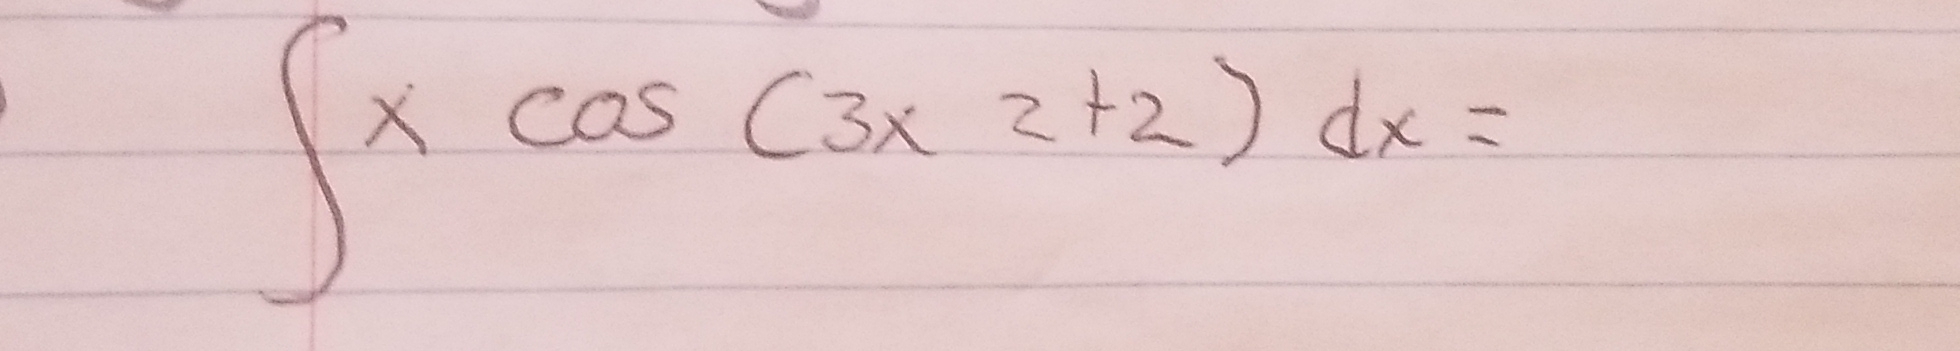 ∫ x cos (3x 2+2) dx =